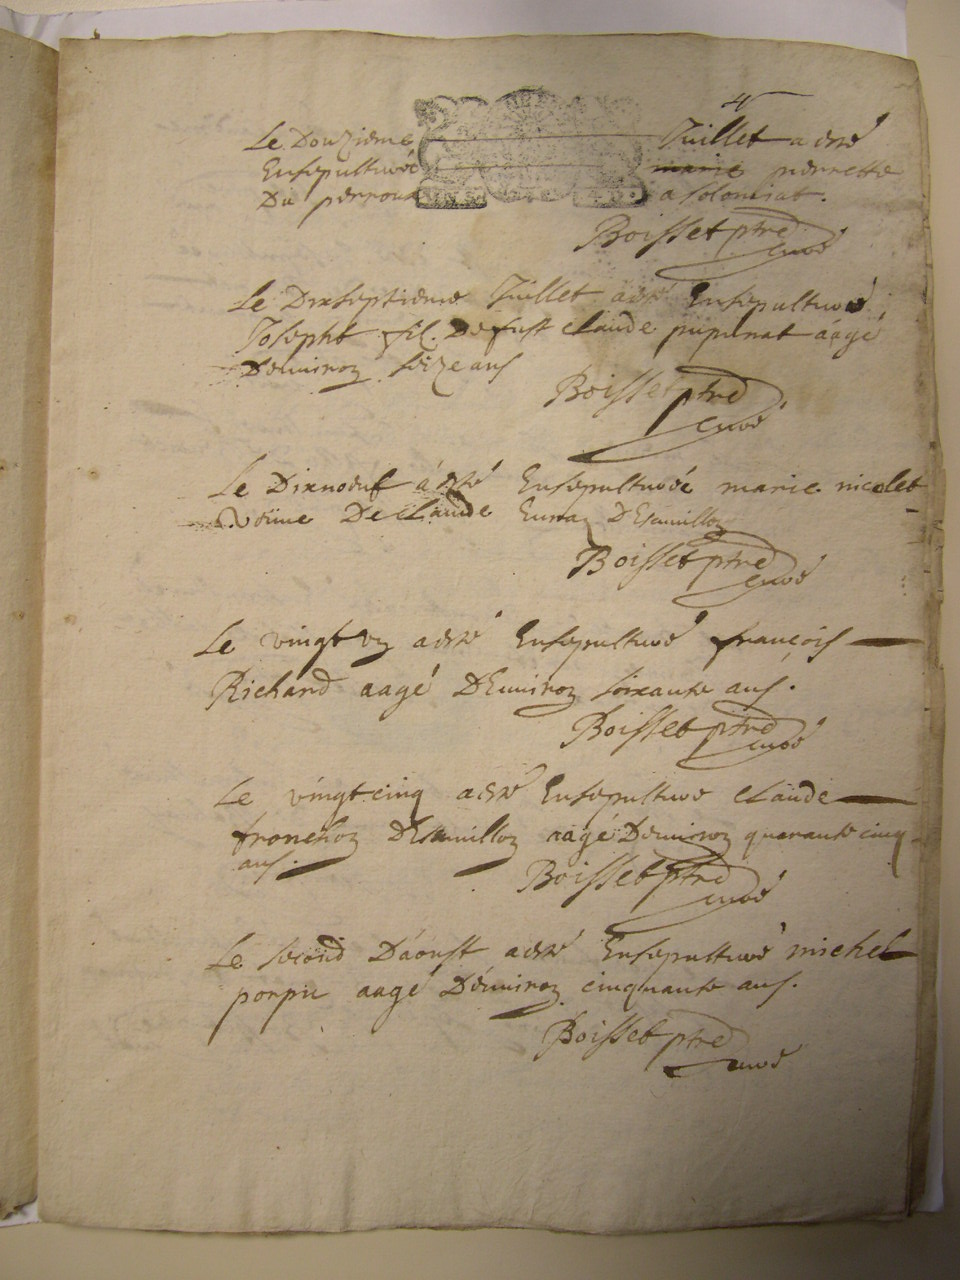 4
Le Douzieme Juillet a esté
Ensepulturée marie pierrette
Du perroux a Solomiat.
Boisset ptre
curé
Le Dixseptieme Juillet a esté Ensepulturé
Joseph fil. De fust claude pupunat áagé
Denuiron seize ans
Boisset ptre
curé
Le Dixneuf á esté Ensepulturéé marie nicolet
Veüue De claude D'Esmillon
Boisset ptre
curé
Le vingt un a esté Ensepulturé françois
Richard aagé D'Enuiron soixante ans.
Boisset ptre
curé
Le vingtcinq a esté Ensepulturé claude
fronchon aagé Denuiron quarante cinq
ans.
Boisset ptre
curé
Le second D'áoust a esté Ensepulturé michel
aagé D'énuiron cinquante ans.
Boisset ptre
curé